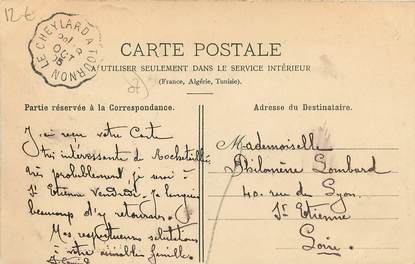 12€
LE CHEYLARD A TOURNON
OCT
CARTE POSTALE
A UTILISER SEULEMENT DANS LE SERVICE INTÉRIEUR
(France, Algérie, Tunisie).
Partie réservée à la Correspondance.
J'ai reçu votre Carte
très intéressante de Rochetaillée
très probablement je serai à
St Etienne Vendredi. Je languis
beaucoup d'y retourner.
Mes respectueuses salutations
à votre aimable famille.
Adresse du Destinataire.
Mademoiselle
Philomène Lombard
40 rue de Lyon
St Etienne
Loire.